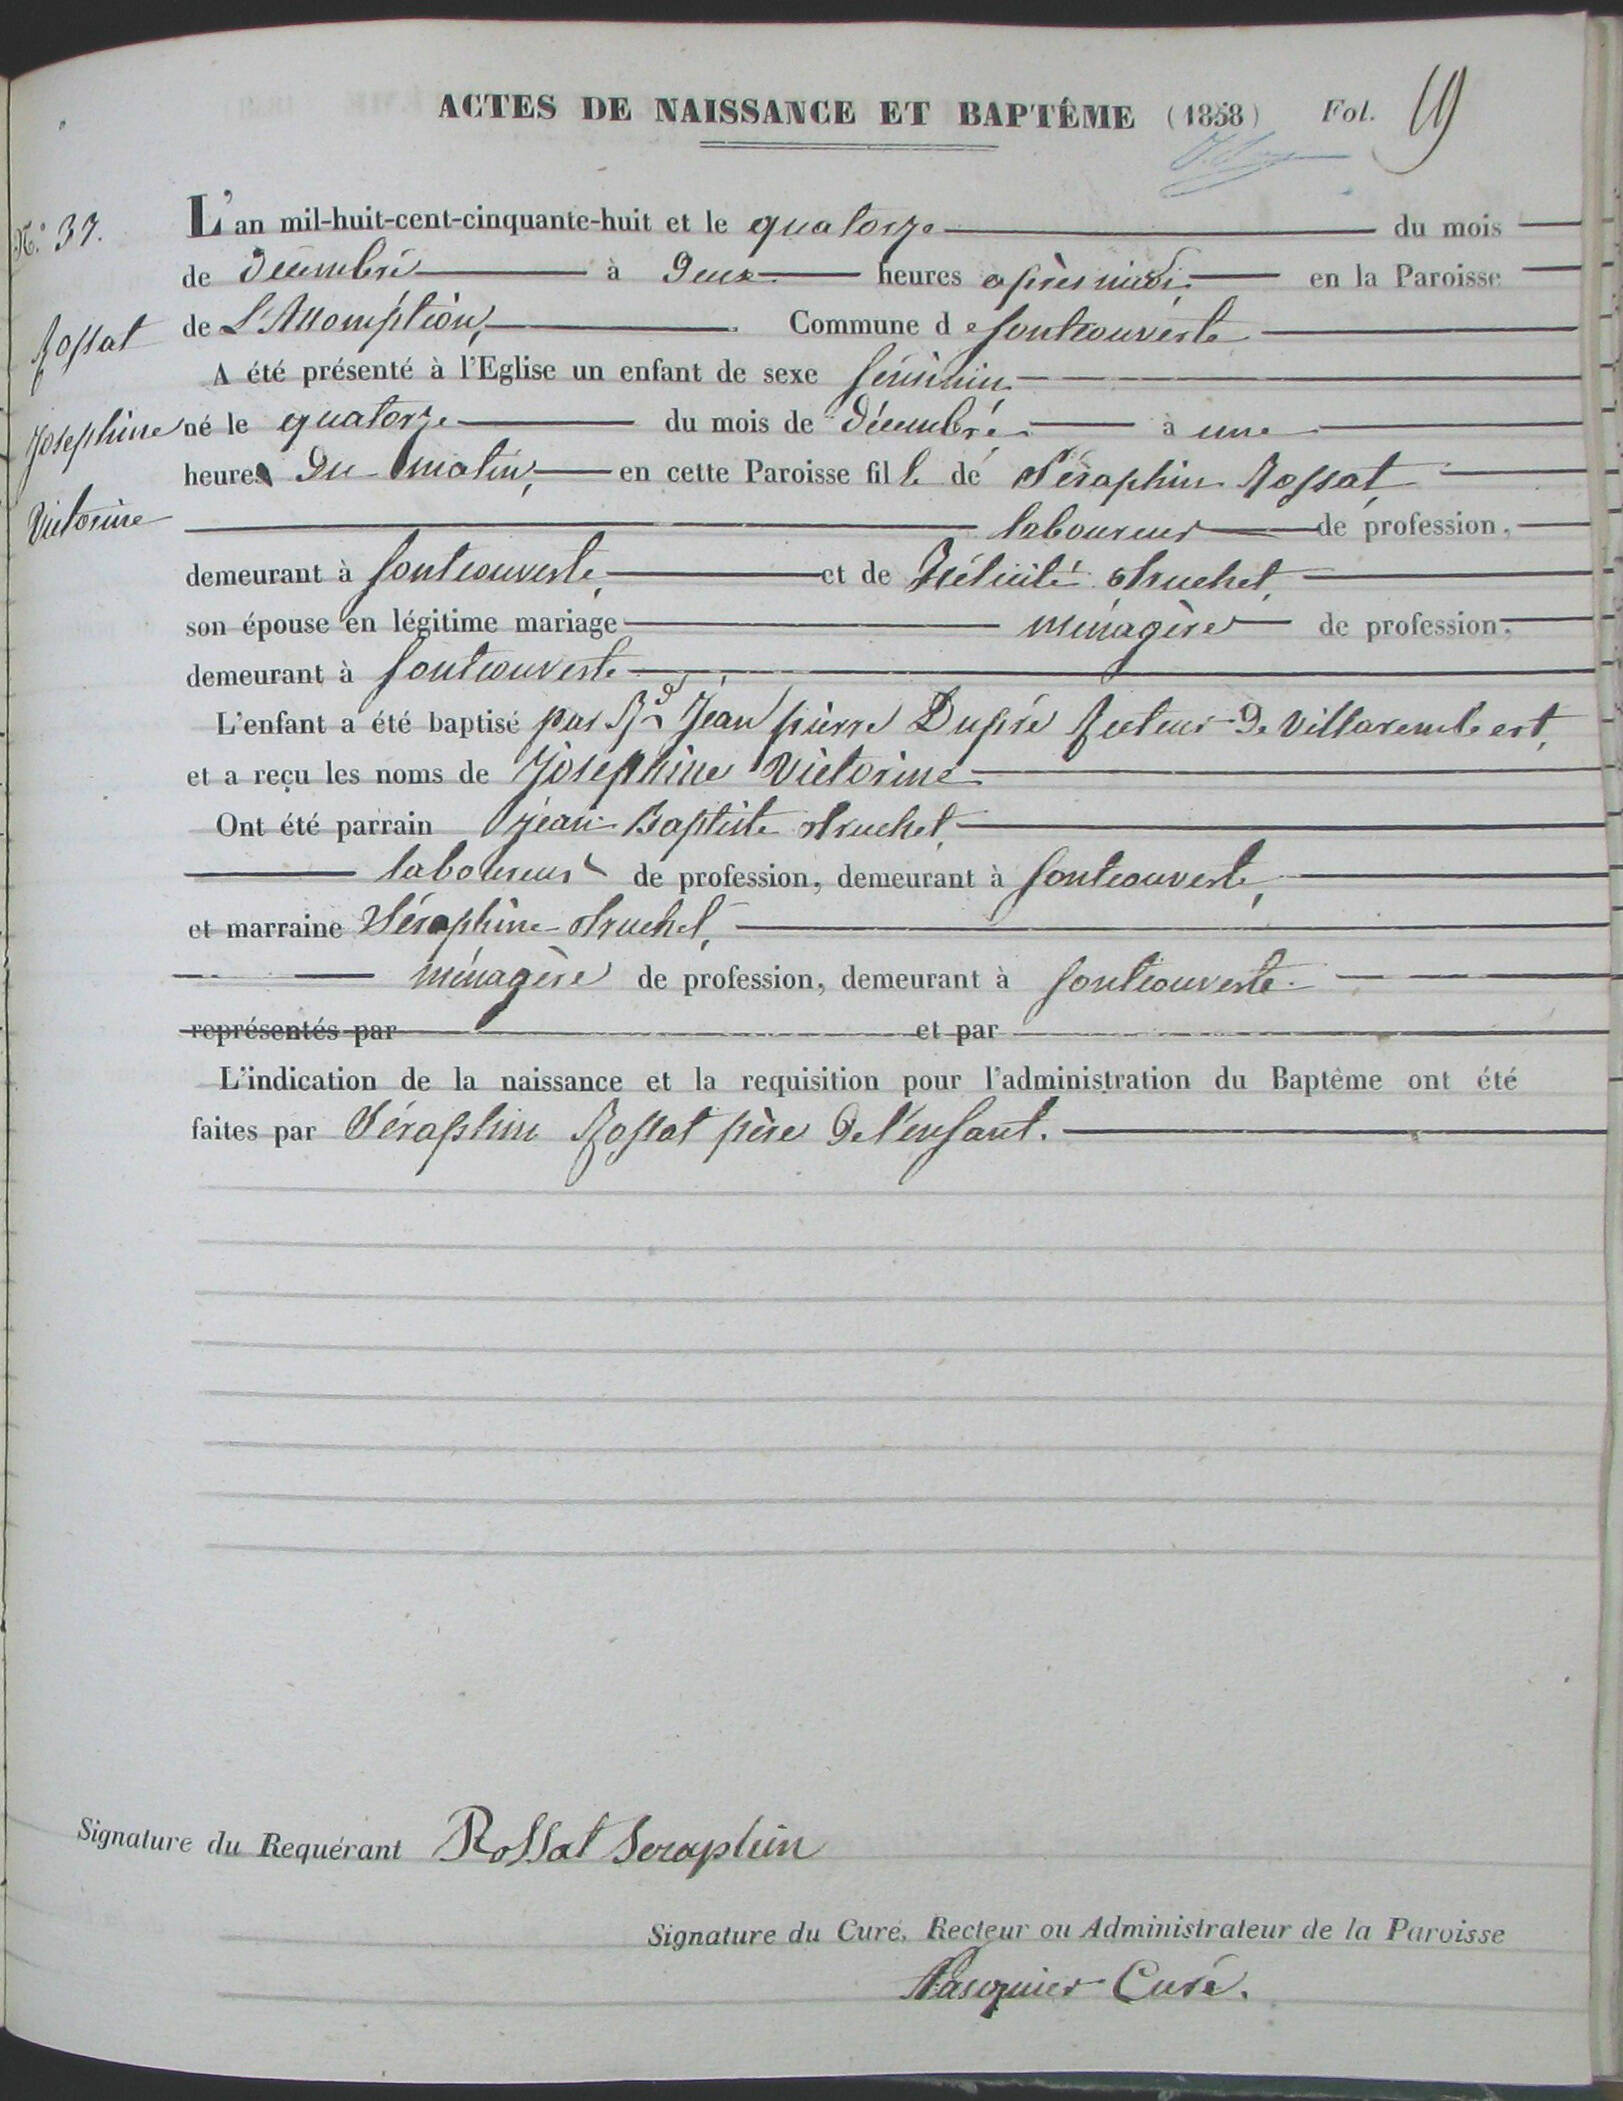 ACTES DE NAISSANCE ET BAPTÊME (1858) Fol. 19
N.° 37.
L'an mil-huit-cent-cinquante-huit et le quatorze du mois
de Décembre à Deux heures après midi, en la Paroisse
Rossat
de L'Assomption, Commune de fontcouverte
A été présenté à l'Eglise un enfant de sexe féminin
Josephine
né le quatorze du mois de Décembre à une
heure Du matin, en cette Paroisse fille de Séraphin Rossat,
Victorine
laboureur de profession,
demeurant à fontcouverte, et de Félicité Truchet,
son épouse en légitime mariage ménagère de profession,
demeurant à fontcouverte
L'enfant a été baptisé par Rd Jean pierre Dupré Recteur De Villarembert,
et a reçu les noms de Josephine Victorine
Ont été parrain jean Baptiste Truchet,
laboureur de profession, demeurant à fontcouverte,
et marraine Séraphine Truchet,
ménagère de profession, demeurant à fontcouverte.
représentés par et par
L'indication de la naissance et la requisition pour l'administration du Baptême ont été
faites par Séraphin Rossat père De l'enfant.
Signature du Requérant Rossat Seraphin
Signature du Curé, Recteur ou Administrateur de la Paroisse
Pasquier Curé.